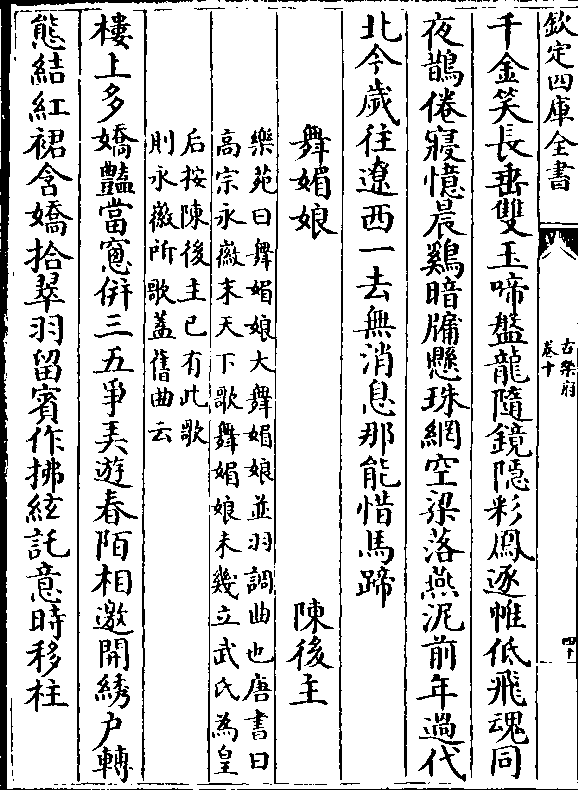 欽定四庫全書
古樂府
卷十
四十
千金笑長垂雙玉啼盤龍隨鏡隱彩鳳逐帷低飛魂同
夜鵲倦寢憶晨鷄暗牖懸珠網空梁落燕泥前年過代
北今歲往遼西一去無消息那能惜馬蹄
舞媚娘
陳後主
樂苑曰舞媚娘大舞媚娘並羽調曲也唐書曰
高宗永徽末天下歌舞媚娘未幾立武氏為皇
后按陳後主已有此歌
則永徽所歌葢舊曲云
樓上多嬌豔當窻併三五爭美遊春陌相邀開綉户轉
態結紅裙含嬌拾翠羽留賓作拂絃託意時移柱